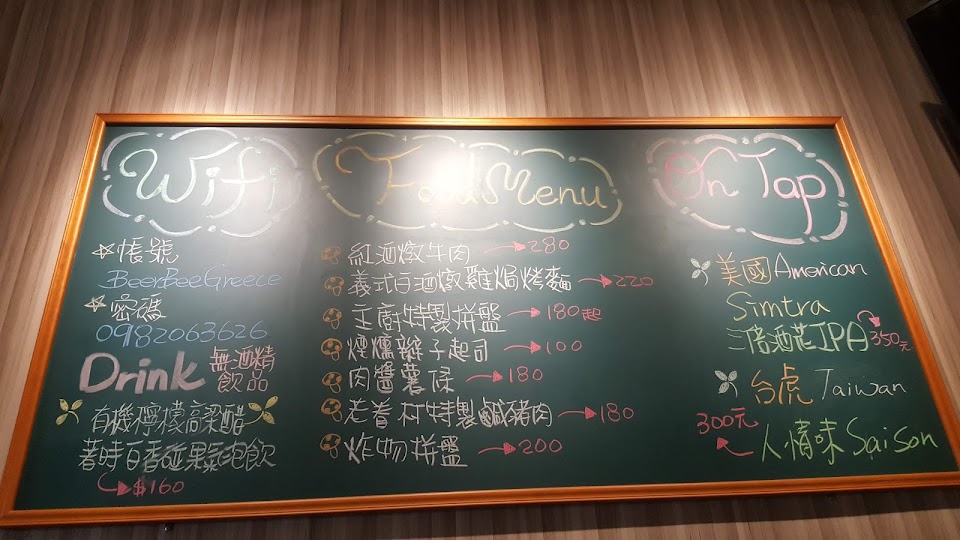 Wifi
☆帳號
BeerBeeGreece
☆密碼
0982063626
Drink 無酒精飲品
有機檸檬高粱醋
著時百香碰果氣泡飲
→$160
Food Menu
紅酒燉牛肉 →280
義式白酒燉雞焗烤麵 →220
主廚特製拼盤 →180起
煙燻辮子起司 →100
肉醬薯條 →180
老眷村特製鹹豬肉 →180
炸物拼盤 →200
On Tap
美國American
Simtra
三倍酒花IPA 350元
台虎 Taiwan
300元
人情味 Saison